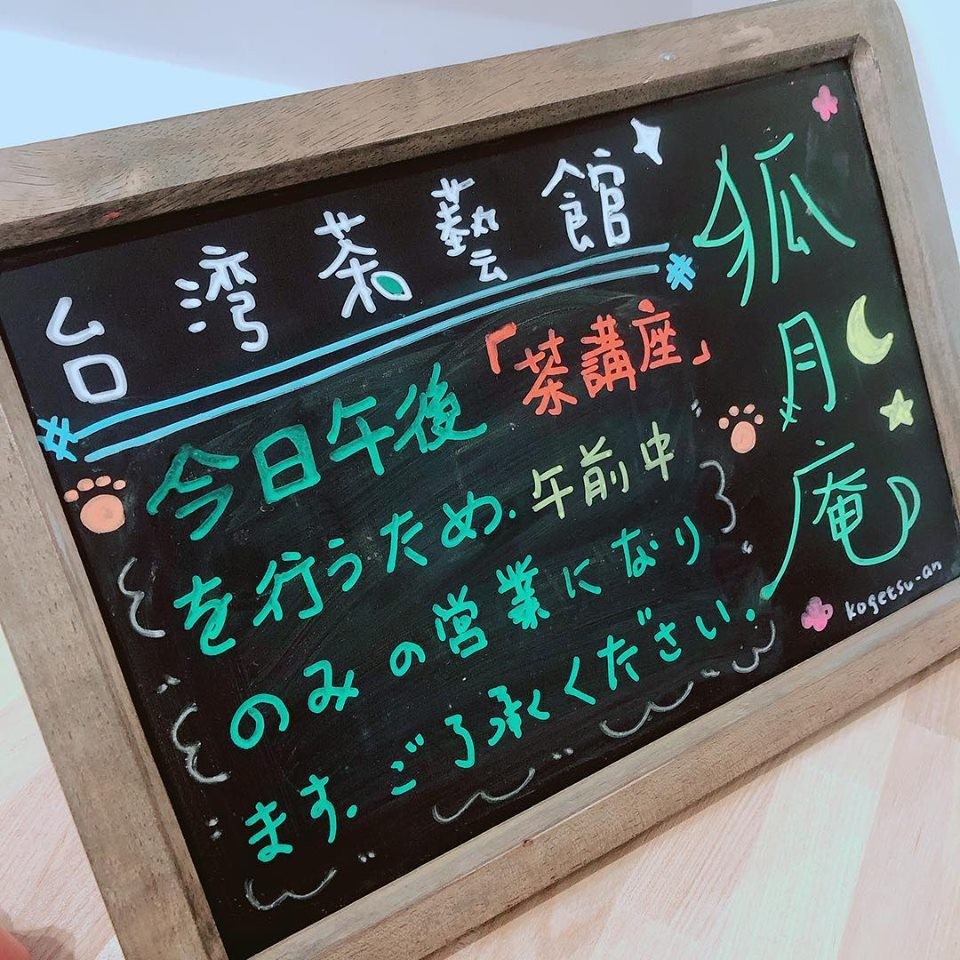 台湾茶藝館
狐月庵
kogetsu-an
今日午後「茶講座」
を行うため.午前中
のみの営業になり
ます.ご了承ください.